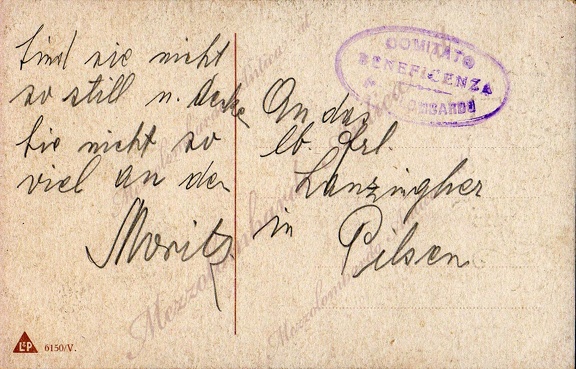 Sind sie nicht
so still u. denke
Sie nicht so
viel an den
Moritz
An das
lb. Frl.
Lanzingher
in
Pilsen
COMITATO
BENEFICENZA
LOMBARDO
L&P 6150/V.